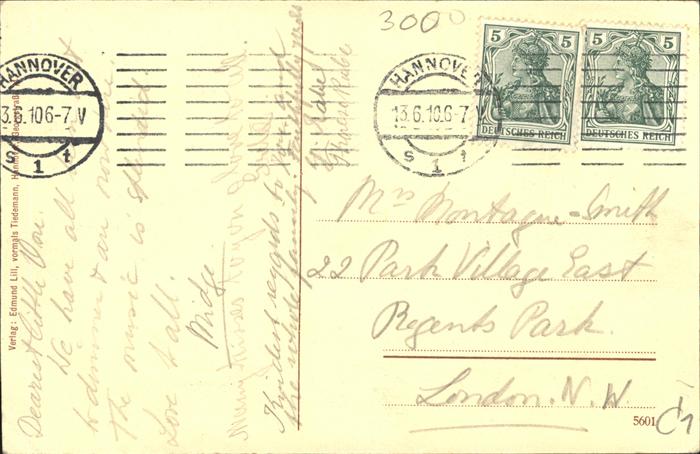 3000
HANNOVER
13.6.10 6-7 V
s 1 t
HANNOVER
13.6.10.6-7 V
s 1 t
5 5
DEUTSCHES REICH
5 5
DEUTSCHES REICH
Verlag: Edmund Lill, vormals Tiedemann,
Dearest little One.
We have all
to dinner & are now
The music is splendid.
Love to all.
Midge
Many kisses
Kindest regards to you and
the whole family
Mrs Montague-Smith
22 Park Village East
Regents Park.
London. N.W.
5601